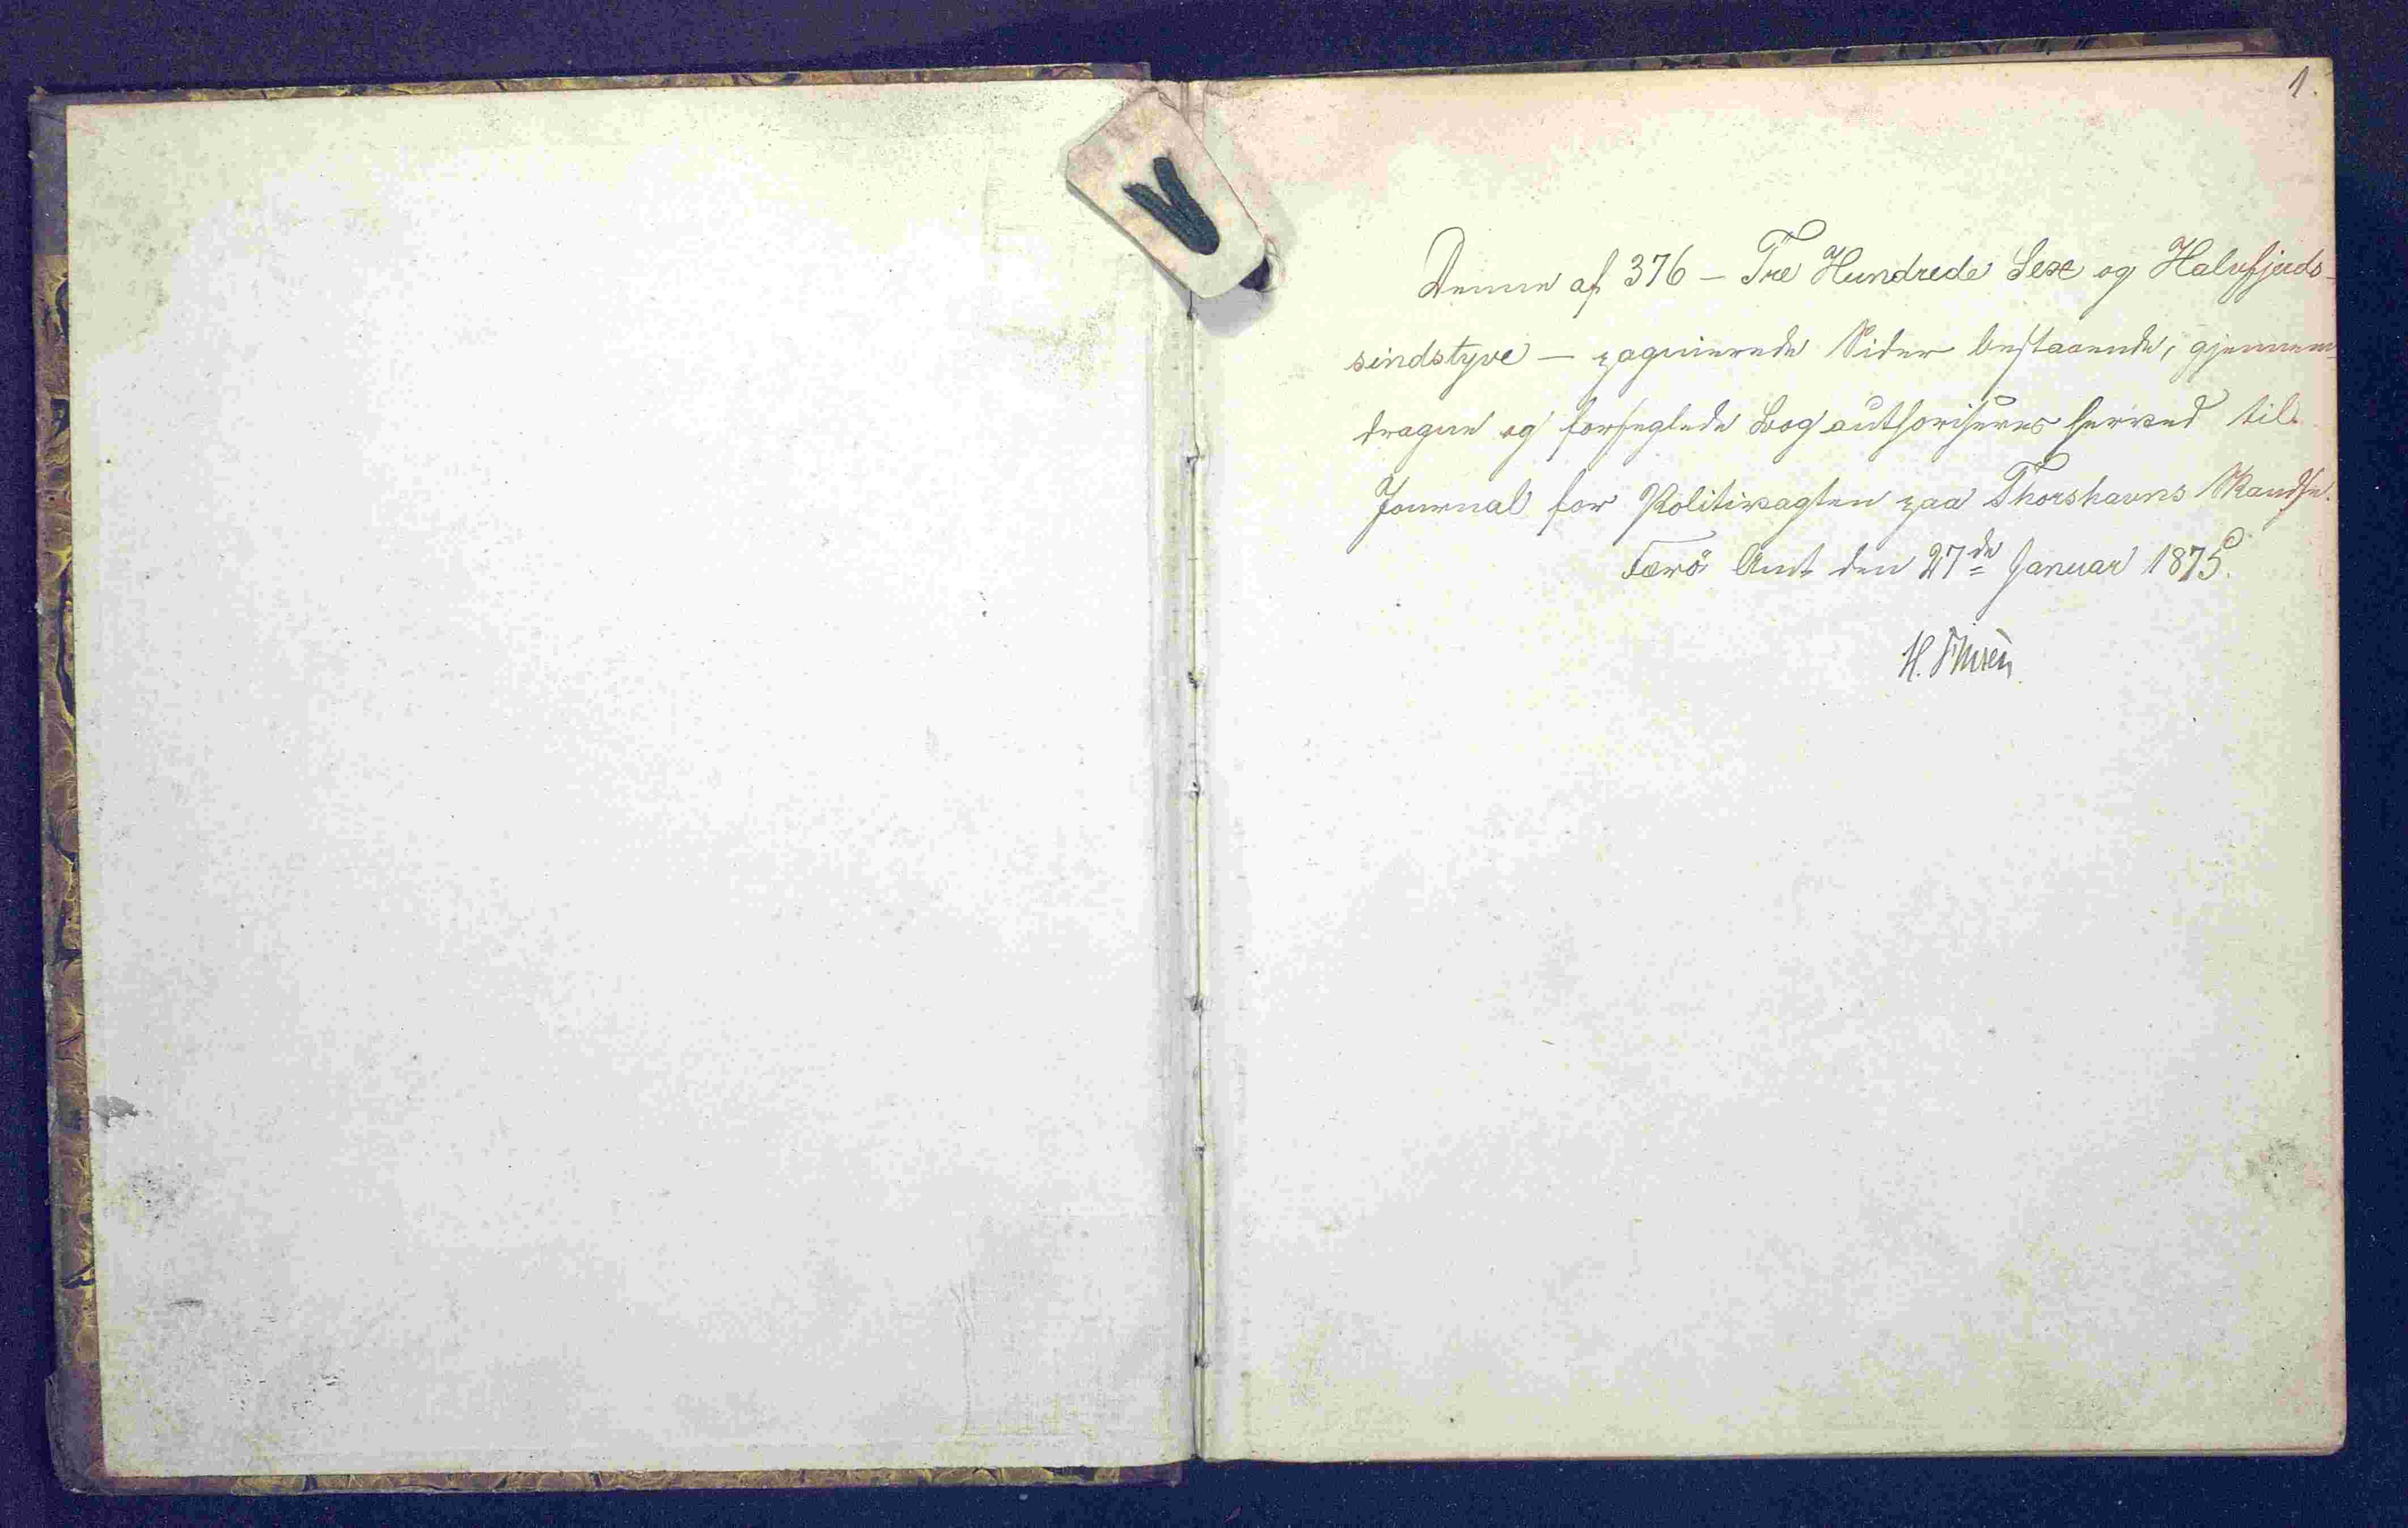 1.
Denne af 376 – Tre Hundrede Sexe og Halvfjerds-
sindstyve – paginerede Sider bestaaende, gjennem-
dragne og forseglede Bog authoriseres herved til
Journal for Politivagten paa Thorshavns Skandse.
Færö Amt den 27de Januar 1875.
H. Finsen